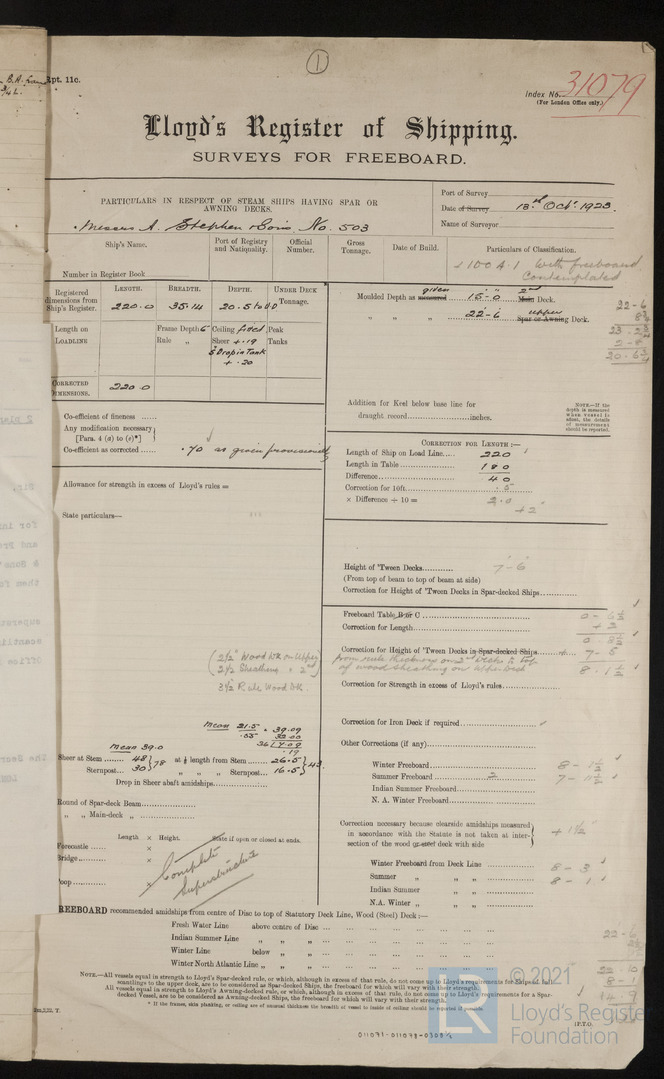 ①
Rpt. 11c.
Index No. 31079
(For London Office only.)
Lloyd's Register of Shipping.
SURVEYS FOR FREEBOARD.
PARTICULARS IN RESPECT OF STEAM SHIPS HAVING SPAR OR
AWNING DECKS.
Messrs A. Stephen & Sons No. 503
Port of Survey
Date of Survey 18th Octr. 1923.
Name of Surveyor
Ship's Name.
Port of Registry and Nationality.
Official Number.
Gross Tonnage.
Date of Build.
Particulars of Classification.
Number in Register Book
+100 A.1 with freeboard
Contemplated
Registered dimensions from Ship's Register.
LENGTH. BREADTH. DEPTH. UNDER DECK Tonnage.
220.0 35.14 20.5 to U.D
Length on LOADLINE
Frame Depth 6" Ceiling fited Peak
Rule " Sheer + .19 Tanks
Drop in Tank
+ .20
CORRECTED DIMENSIONS. 220.0
Moulded Depth as measured given 15-0 Main 2nd Deck.
" " " 22-6 Spar or Awning upper Deck.
22-6
20-6¾
Addition for Keel below base line for
draught record inches.
NOTE.—If the depth is measured when vessel is afloat, the details of measurement should be reported.
Co-efficient of fineness
Any modification necessary
[Para. 4 (a) to (e)*]
Co-efficient as corrected .70 as given provisionally
CORRECTION FOR LENGTH:—
Length of Ship on Load Line 220
Length in Table 180
Difference 40
Correction for 10ft. .5
× Difference ÷ 10 = 2.0
+2"
Allowance for strength in excess of Lloyd's rules =
State particulars—
Height of 'Tween Decks 7-6
(From top of beam to top of beam at side)
Correction for Height of 'Tween Decks in Spar-decked Ships
Freeboard Table B or C 0-6½
Correction for Length +2
0.8½
Correction for Height of 'Tween Decks in Spar-decked Ships + 7-5
8-1½
Correction for Strength in excess of Lloyd's rules
2½" Wood Dk on Upper
2½ Sheathing " 2nd
3½ Rule Wood Dk.
Correction for Iron Deck if required
Other Corrections (if any)
Mean 39.0
Sheer at Stem 48 } 78 at ⅛ length from Stem 26.5 } 43
Sternpost 30 " " " Sternpost 16.5
Drop in Sheer abaft amidships
Winter Freeboard 8-1½
Summer Freeboard 2 7-11½
Indian Summer Freeboard
N. A. Winter Freeboard
Round of Spar-deck Beam
" " Main-deck "
Correction necessary because clearside amidships measured
in accordance with the Statute is not taken at inter-
section of the wood or steel deck with side + 1½
Length × Height. State if upon or closed at ends.
Forecastle ×
Bridge ×
Poop ×
Complete
Superstructure
Winter Freeboard from Deck Line 8-3
Summer " " " 8-1
Indian Summer " "
N.A. Winter " " "
FREEBOARD recommended amidships from centre of Disc to top of Statutory Deck Line, Wood (Steel) Deck:—
Fresh Water Line above centre of Disc
Indian Summer Line " " "
Winter Line below " "
Winter North Atlantic Line " " "
22-6
NOTE.—All vessels equal in strength to Lloyd's Spar-decked rule, or which, although in excess of that rule, do not come up to Lloyd's requirements for Ships of full
scantlings to the upper deck, are to be considered as Spar-decked Ships, the freeboard for which will vary with their strength.
All vessels equal in strength to Lloyd's Awning-decked rule, or which, although in excess of that rule, do not come up to Lloyd's requirements for a Spar-
decked Vessel, are to be considered as Awning-decked Ships, the freeboard for which will vary with their strength.
* If the frames, skin planking, or ceiling are of unusual thickness the breadth of vessel to inside of ceiling should be reported if possible.
(P.T.O.)
© 2021
Lloyd's Register
Foundation
LR